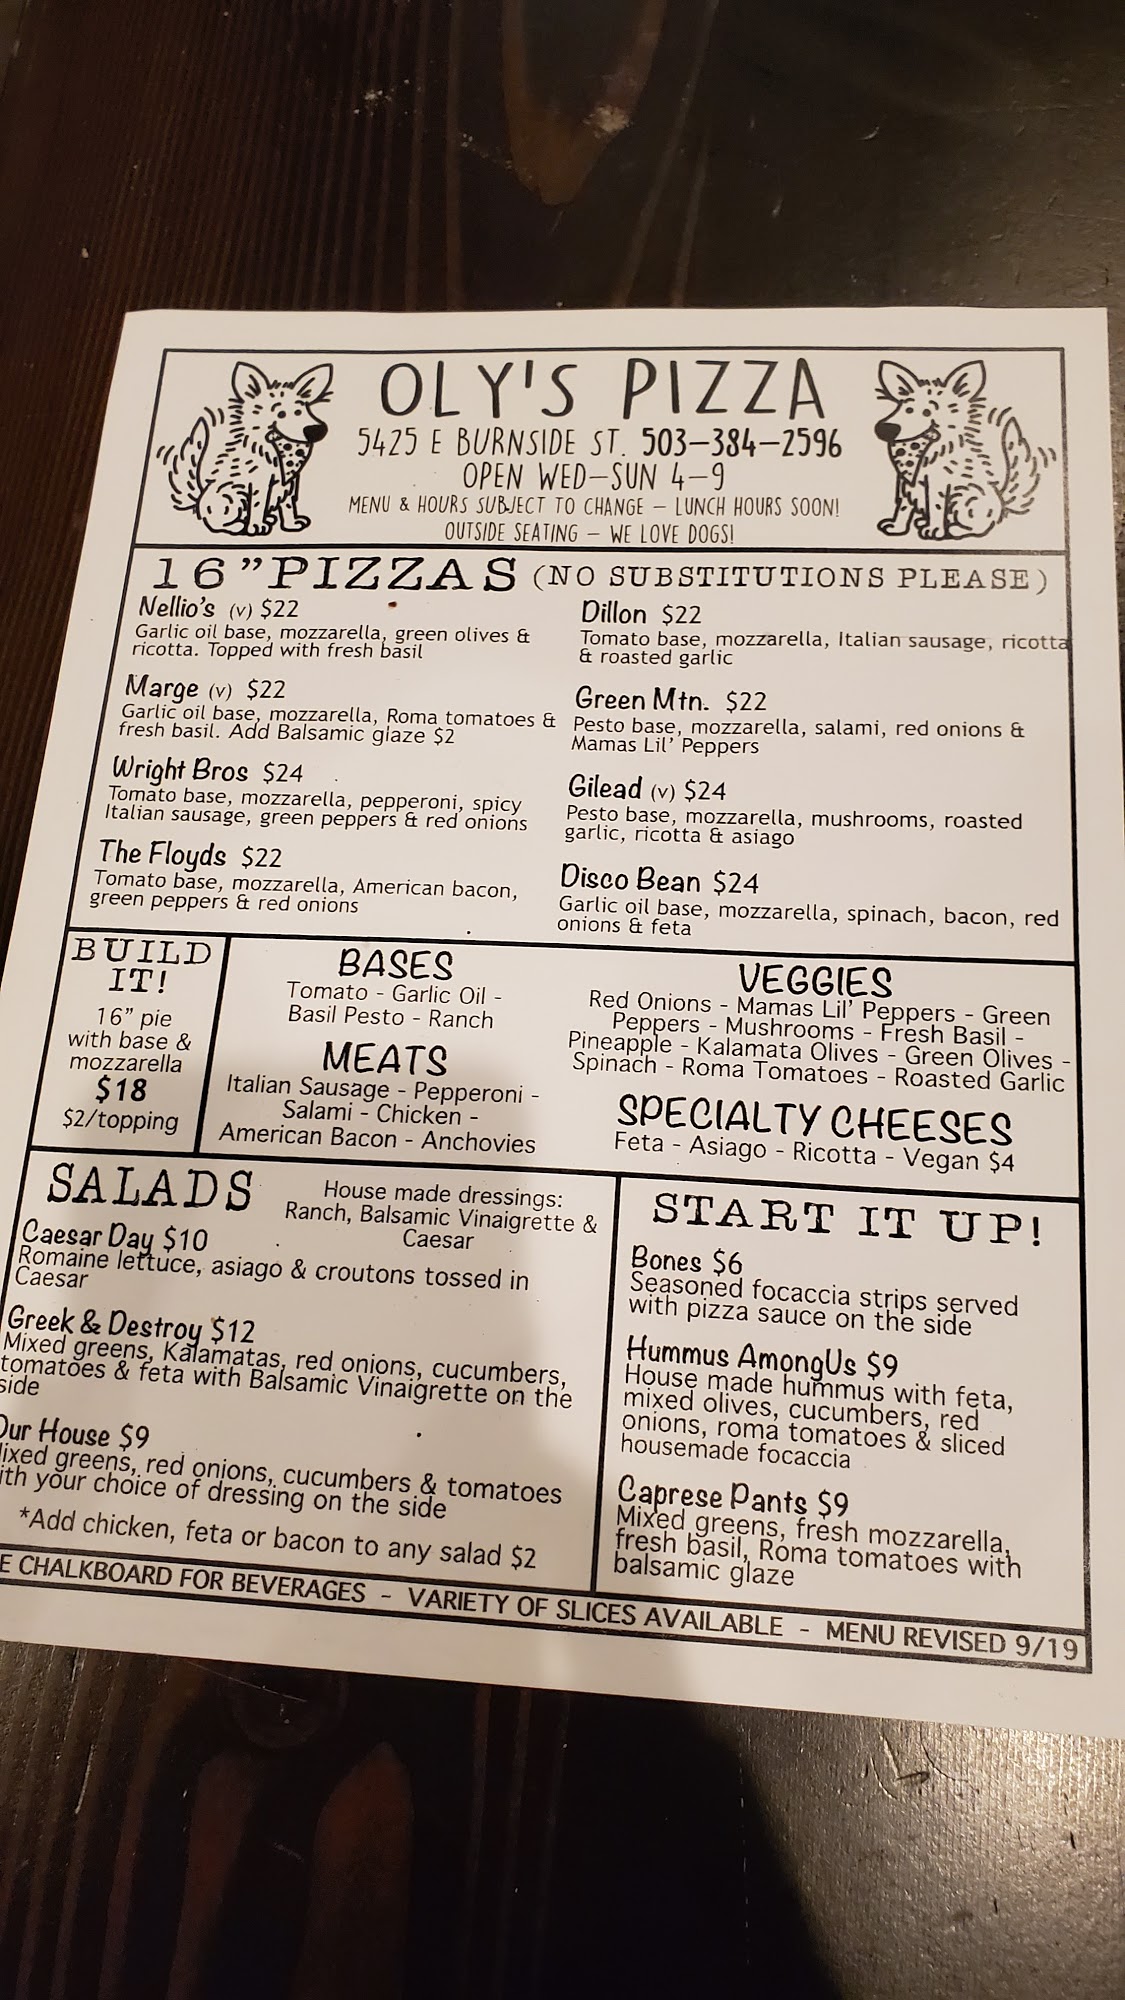 OLY'S PIZZA
5425 E BURNSIDE ST. 503-384-2596
OPEN WED-SUN 4-9
MENU & HOURS SUBJECT TO CHANGE - LUNCH HOURS SOON!
OUTSIDE SEATING - WE LOVE DOGS!
16" PIZZAS (NO SUBSTITUTIONS PLEASE)
Nellio's (v) $22
Garlic oil base, mozzarella, green olives &
ricotta. Topped with fresh basil
Marge (v) $22
Garlic oil base, mozzarella, Roma tomatoes &
fresh basil. Add Balsamic glaze $2
Wright Bros $24
Tomato base, mozzarella, pepperoni, spicy
Italian sausage, green peppers & red onions
The Floyds $22
Tomato base, mozzarella, American bacon,
green peppers & red onions
Dillon $22
Tomato base, mozzarella, Italian sausage, ricotta
& roasted garlic
Green Mtn. $22
Pesto base, mozzarella, salami, red onions &
Mamas Lil' Peppers
Gilead (v) $24
Pesto base, mozzarella, mushrooms, roasted
garlic, ricotta & asiago
Disco Bean $24
Garlic oil base, mozzarella, spinach, bacon, red
onions & feta
BUILD
IT!
16" pie
with base &
mozzarella
$18
$2/topping
BASES
Tomato - Garlic Oil -
Basil Pesto - Ranch
MEATS
Italian Sausage - Pepperoni -
Salami - Chicken -
American Bacon - Anchovies
VEGGIES
Red Onions - Mamas Lil' Peppers - Green
Peppers - Mushrooms - Fresh Basil -
Pineapple - Kalamata Olives - Green Olives -
Spinach - Roma Tomatoes - Roasted Garlic
SPECIALTY CHEESES
Feta - Asiago - Ricotta - Vegan $4
SALADS
House made dressings:
Ranch, Balsamic Vinaigrette &
Caesar
Caesar Day $10
Romaine lettuce, asiago & croutons tossed in
Caesar
Greek & Destroy $12
Mixed greens, Kalamatas, red onions, cucumbers,
tomatoes & feta with Balsamic Vinaigrette on the
side
Our House $9
greens, red onions, cucumbers & tomatoes
your choice of dressing on the side
*Add chicken, feta or bacon to any salad $2
START IT UP!
Bones $6
Seasoned focaccia strips served
with pizza sauce on the side
Hummus AmongUs $9
House made hummus with feta,
mixed olives, cucumbers, red
onions, roma tomatoes & sliced
housemade focaccia
Caprese Pants $9
Mixed greens, fresh mozzarella,
fresh basil, Roma tomatoes with
balsamic glaze
CHALKBOARD FOR BEVERAGES - VARIETY OF SLICES AVAILABLE - MENU REVISED 9/19